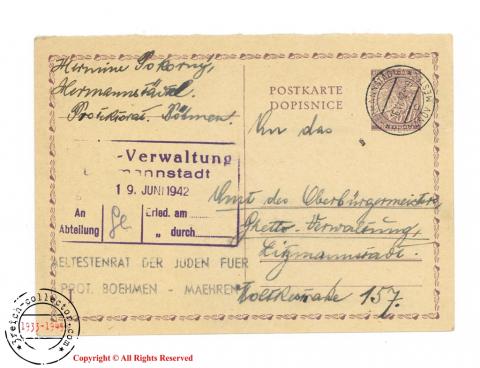 Hermine Pokorny,
Hermannstädtel.
Protektorat. Böhmen.
POSTKARTE
DOPISNICE
An das
-Verwaltung
mannstadt
19. JUNI 1942
An
Abteilung
Erled. am
" durch
Amt des Oberbürgermeisters,
Ghetto-Verwaltung,
Litzmannstadt.
Moltkestraße 157.
AELTESTENRAT DER JUDEN FUER
PROT. BOEHMEN - MAEHREN
3reich-collector.com
1933-1945
Copyright © All Rights Reserved